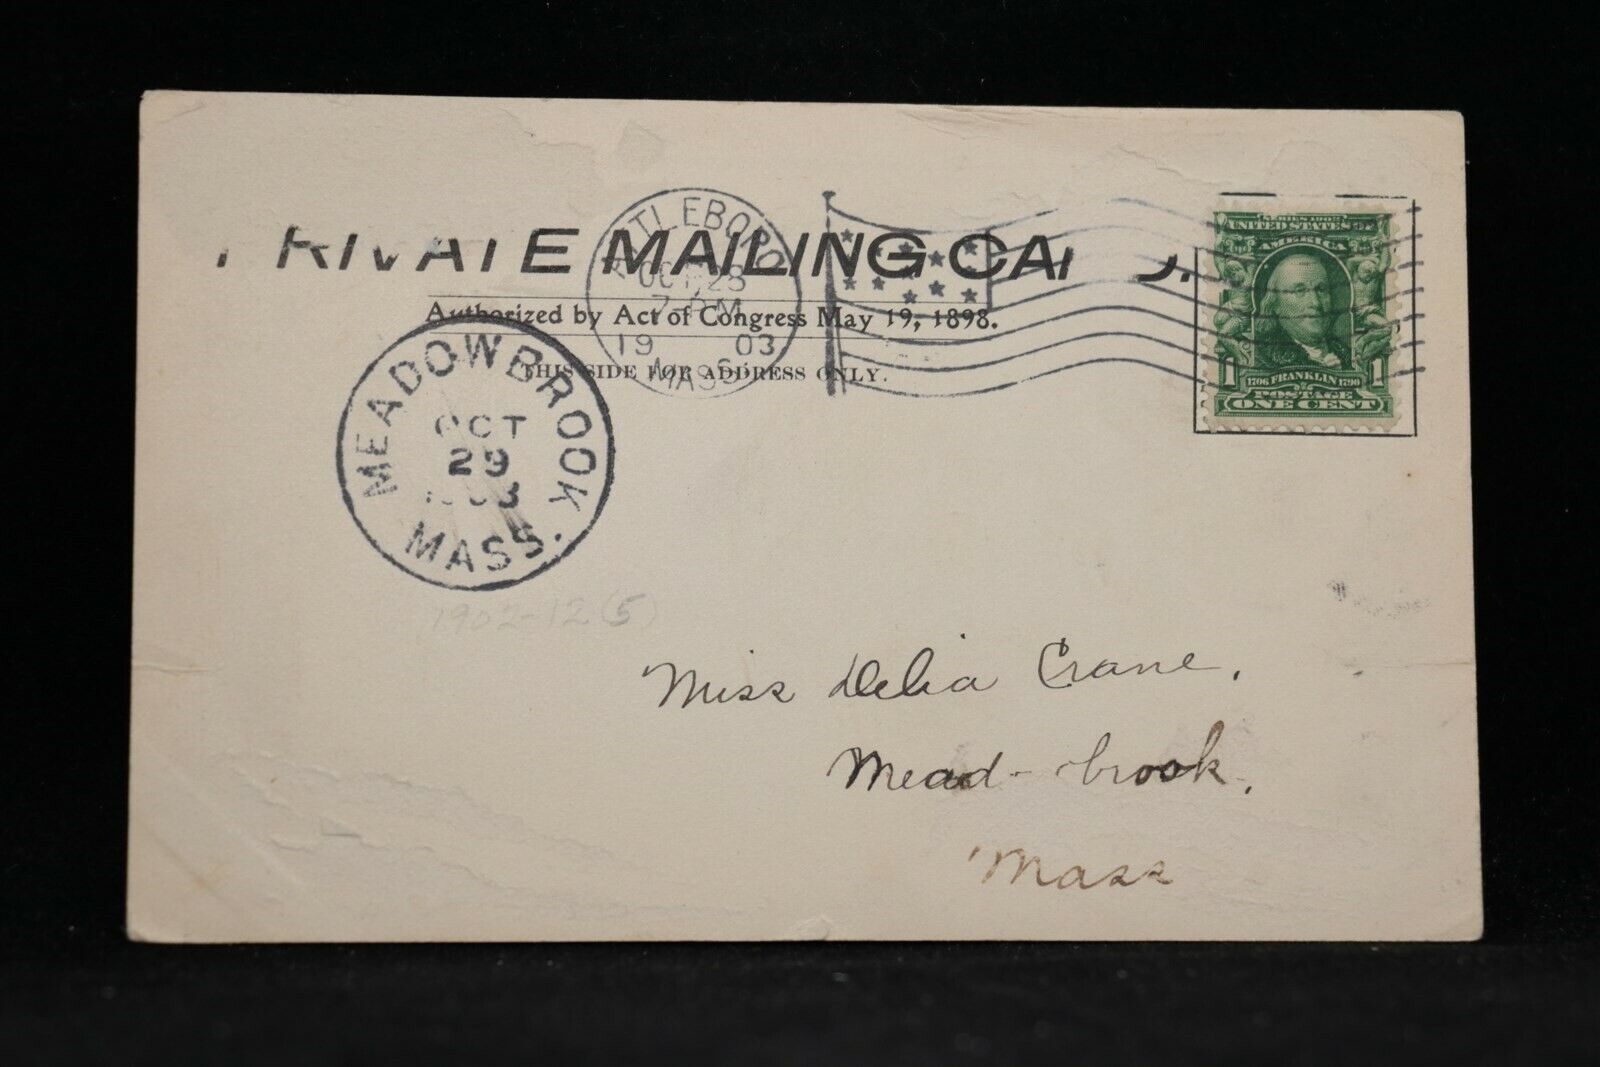 PRIVATE MAILING CARD.
Authorized by Act of Congress May 19, 1898.
THIS SIDE FOR ADDRESS ONLY.
ATTLEBORO
OCT 28
7- M
19 03
MASS.
SERIES 1902
UNITED STATES OF
AMERICA
1 1
1706 FRANKLIN 1790
POSTAGE
ONE CENT
MEADOWBROOK
OCT
29
1903
MASS.
1902-12 (5)
Miss Delia Crane,
Mead-brook,
Mass